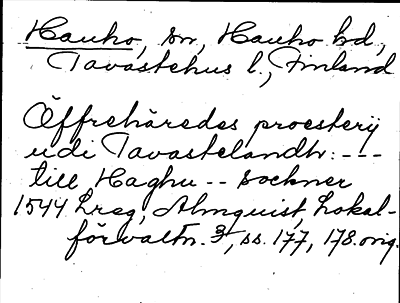 Hauho, sn, Hauho hd,
Tavastehus l., Finland
Öffrehäredes proesterij
udi Tavastelandh: ---
till Haghu -- sockner
1544 Lreg, Almquist, Lokal-
förvaltn. 3, ss. 177, 178. orig.